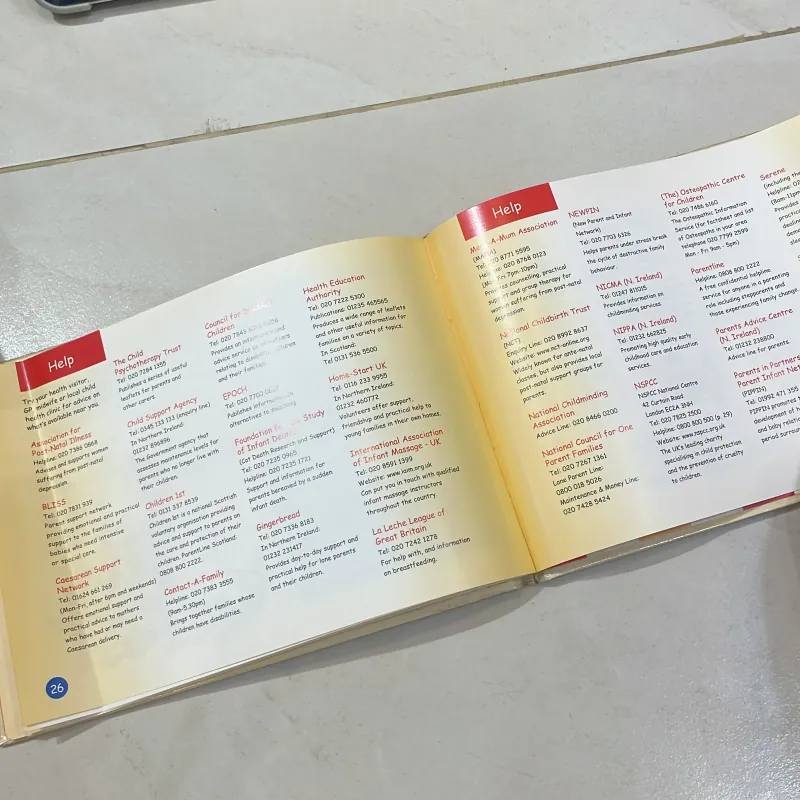 Help
Try your health visitor,
GP, midwife or local child
health clinic for advice on
what's available near you.
Association for
Post-Natal Illness
Helpline: 020 7386 0868
Advises and supports women
suffering from post-natal
depression.
BLISS
Tel: 020 7831 939
Parent support network
providing emotional and practical
support to the families of
babies who need intensive
or special care.
Caesarean Support
Network
Tel: 01624 661 269
(Mon-Fri, after 6pm and weekends)
Offers emotional support and
practical advice to mothers
who have had or may need a
Caesarean delivery.
26
The Child
Psychotherapy Trust
Tel: 020 7284 1355
Publishes a series of useful
leaflets for parents and
other carers.
Child Support Agency
Tel: 0345 133 133 (enquiry line)
In Northern Ireland:
01232 896896
The Government agency that
assesses maintenance levels for
parents who no longer live with
their children.
Children 1st
Tel: 0131 337 8539
Children 1st is a national Scottish
voluntary organisation providing
advice and support to parents on
the care and protection of their
children. ParentLine Scotland.
0808 800 2222.
Contact-A-Family
Helpline: 020 7383 3555
(9am-5.30pm)
Brings together families whose
children have disabilities.
Council for
Children
Tel: 020 7843
Provides an information and
advice service
relating to children
and their families.
EPOCH
Tel: 020 7700
Publishes information
alternatives to smacking.
Foundation Study
of Infant Deaths
(Cot Death Research and Support)
Tel: 020 7235 0965
Helpline: 020 7235 1721
Support and information for
parents bereaved by a sudden
infant death.
Gingerbread
Tel: 020 7336 8183
In Northern Ireland:
01232 231417
Provides day-to-day support and
practical help for lone parents
and their children.
Health Education
Authority
Tel: 020 7222 5300
Publications: 01235 465565
Produces a wide range of leaflets
and other useful information for
families on a variety of topics.
In Scotland:
Tel 0131 536 5500
Home-Start UK
Tel: 0116 233 9955
In Northern Ireland:
01232 460772
Volunteers offer support,
friendship and practical help to
young families in their own homes.
International Association
of Infant Massage - UK
Tel: 020 8591 1399
Website: www.iaim.org.uk
Can put you in touch with qualified
infant massage instructors
throughout the country.
La Leche League of
Great Britain
Tel: 020 7242 1278
For help with, and information
on breastfeeding.
Help
Meet-A-Mum Association
(MAMA)
Tel: 020 8771 5595
Helpline: 020 8768 0123
(Mon-Fri 7pm-10pm)
Provides counselling, practical
support and group therapy for
women suffering from post-natal
depression.
National Childbirth Trust
(NCT)
Enquiry Line: 020 8992 8637
Website: www.nct-online.org
Widely known for ante-natal
classes, but also provides local
post-natal support groups for
parents.
National Childminding
Association
Advice Line: 020 8466 0200
National Council for One
Parent Families
Tel: 020 7267 1361
Lone Parent Line:
0800 018 5026
Maintenance & Money Line:
020 7428 5424
NEWPIN
(New Parent and Infant
Network)
Tel: 020 7703 6326
Helps parents under stress break
the cycle of destructive family
behaviour.
NICMA (N. Ireland)
Tel: 01247 811015
Provides information on
childminding services.
NIPPA (N. Ireland)
Tel: 01232 662825
Promoting high quality early
childhood care and education
services.
NSPCC
NSPCC National Centre
42 Curtain Road
London EC2A 3NH
Tel: 020 7825 2500
Helpline: 0800 800 500
Website: www.nspcc.org.uk
The UK's leading charity
specialising in child protection
and the prevention of cruelty
to children.
(The) Osteopathic Centre
for Children
Tel: 020 7486 6160
The Osteopathic Information
Service (for factsheet and list
of Osteopaths in your area
telephone 020 7799 2559
Mon - Fri 9am - 5pm)
Parentline
Helpline: 0808 800 2222
A free confidential helpline
service for anyone in a parenting
role including stepparents and
those experiencing family change.
Parents Advice Centre
(N. Ireland)
Tel: 01232 238800
Advice line for parents.
Parents in Partnership
Parent Infant
(PIPPIN)
Tel: 01992 471 355
PIPPIN promotes
development of
and baby
period
Serene
(including the
Helpline:
Provides